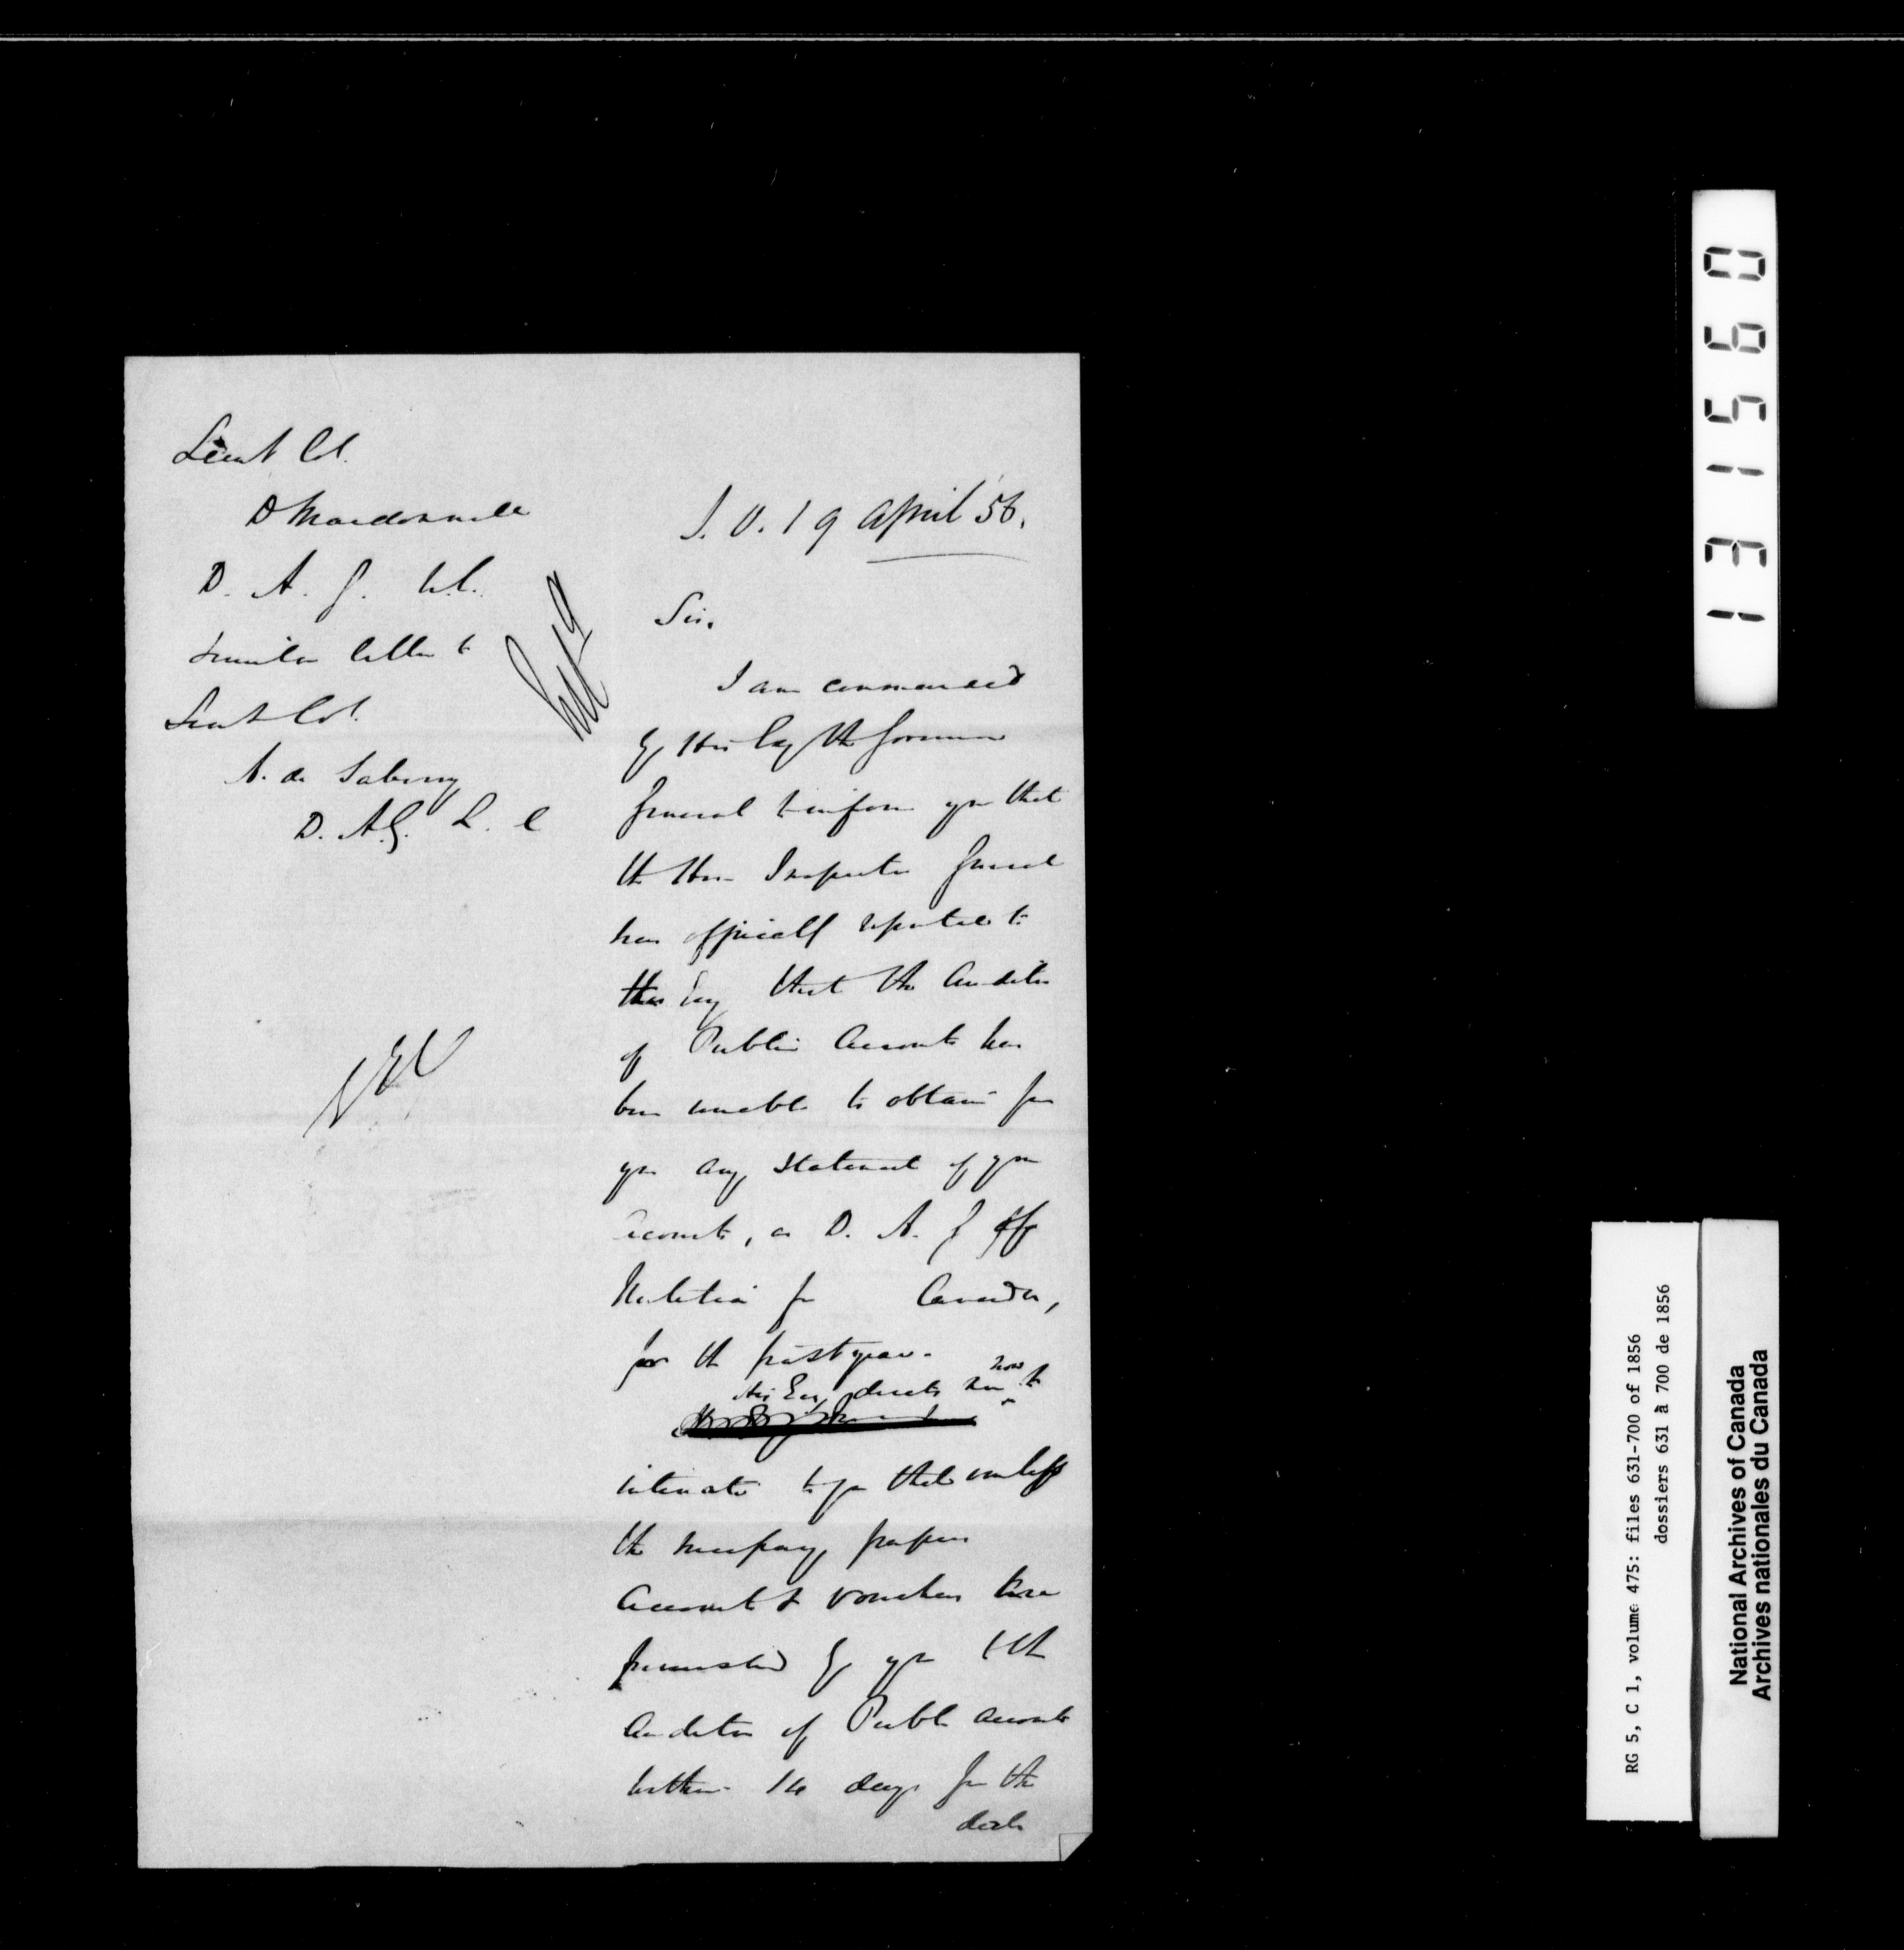 Lieut Col.
D Macdonell
D. A. G. U.C.
Similar letter to
Lieut Col.
A. de Salaberry
D. A.G. L. C
S. O. 19 April '56.
Sir,
I am commanded
by His Exy the Governor
General to inform you that
the Hon Inspector General
has officially reported to
His Exy that the Auditor
of Public Accounts has
been unable to obtain from
you any statement of your
accounts, as D. A. G of
Militia for Canada,
for the past year.
His Exy directs me now to
intimate to you that unless
the necessary papers
Accounts & vouchers are
furnished by you to the
Auditor of Public Accounts
within 14 days from the
date
131560
RG 5, C 1, volume 475: files 631-700 of 1856
dossiers 631 à 700 de 1856
National Archives of Canada
Archives nationales du Canada